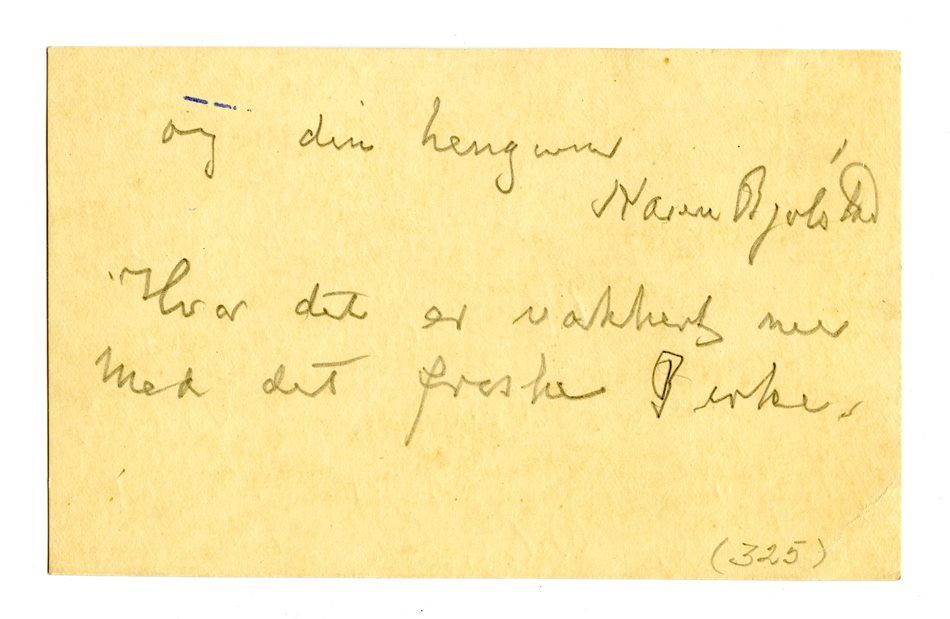 og din
Karen Bjølstad
Hvor det er vakkert nu
Med det friske Birke.
(325)